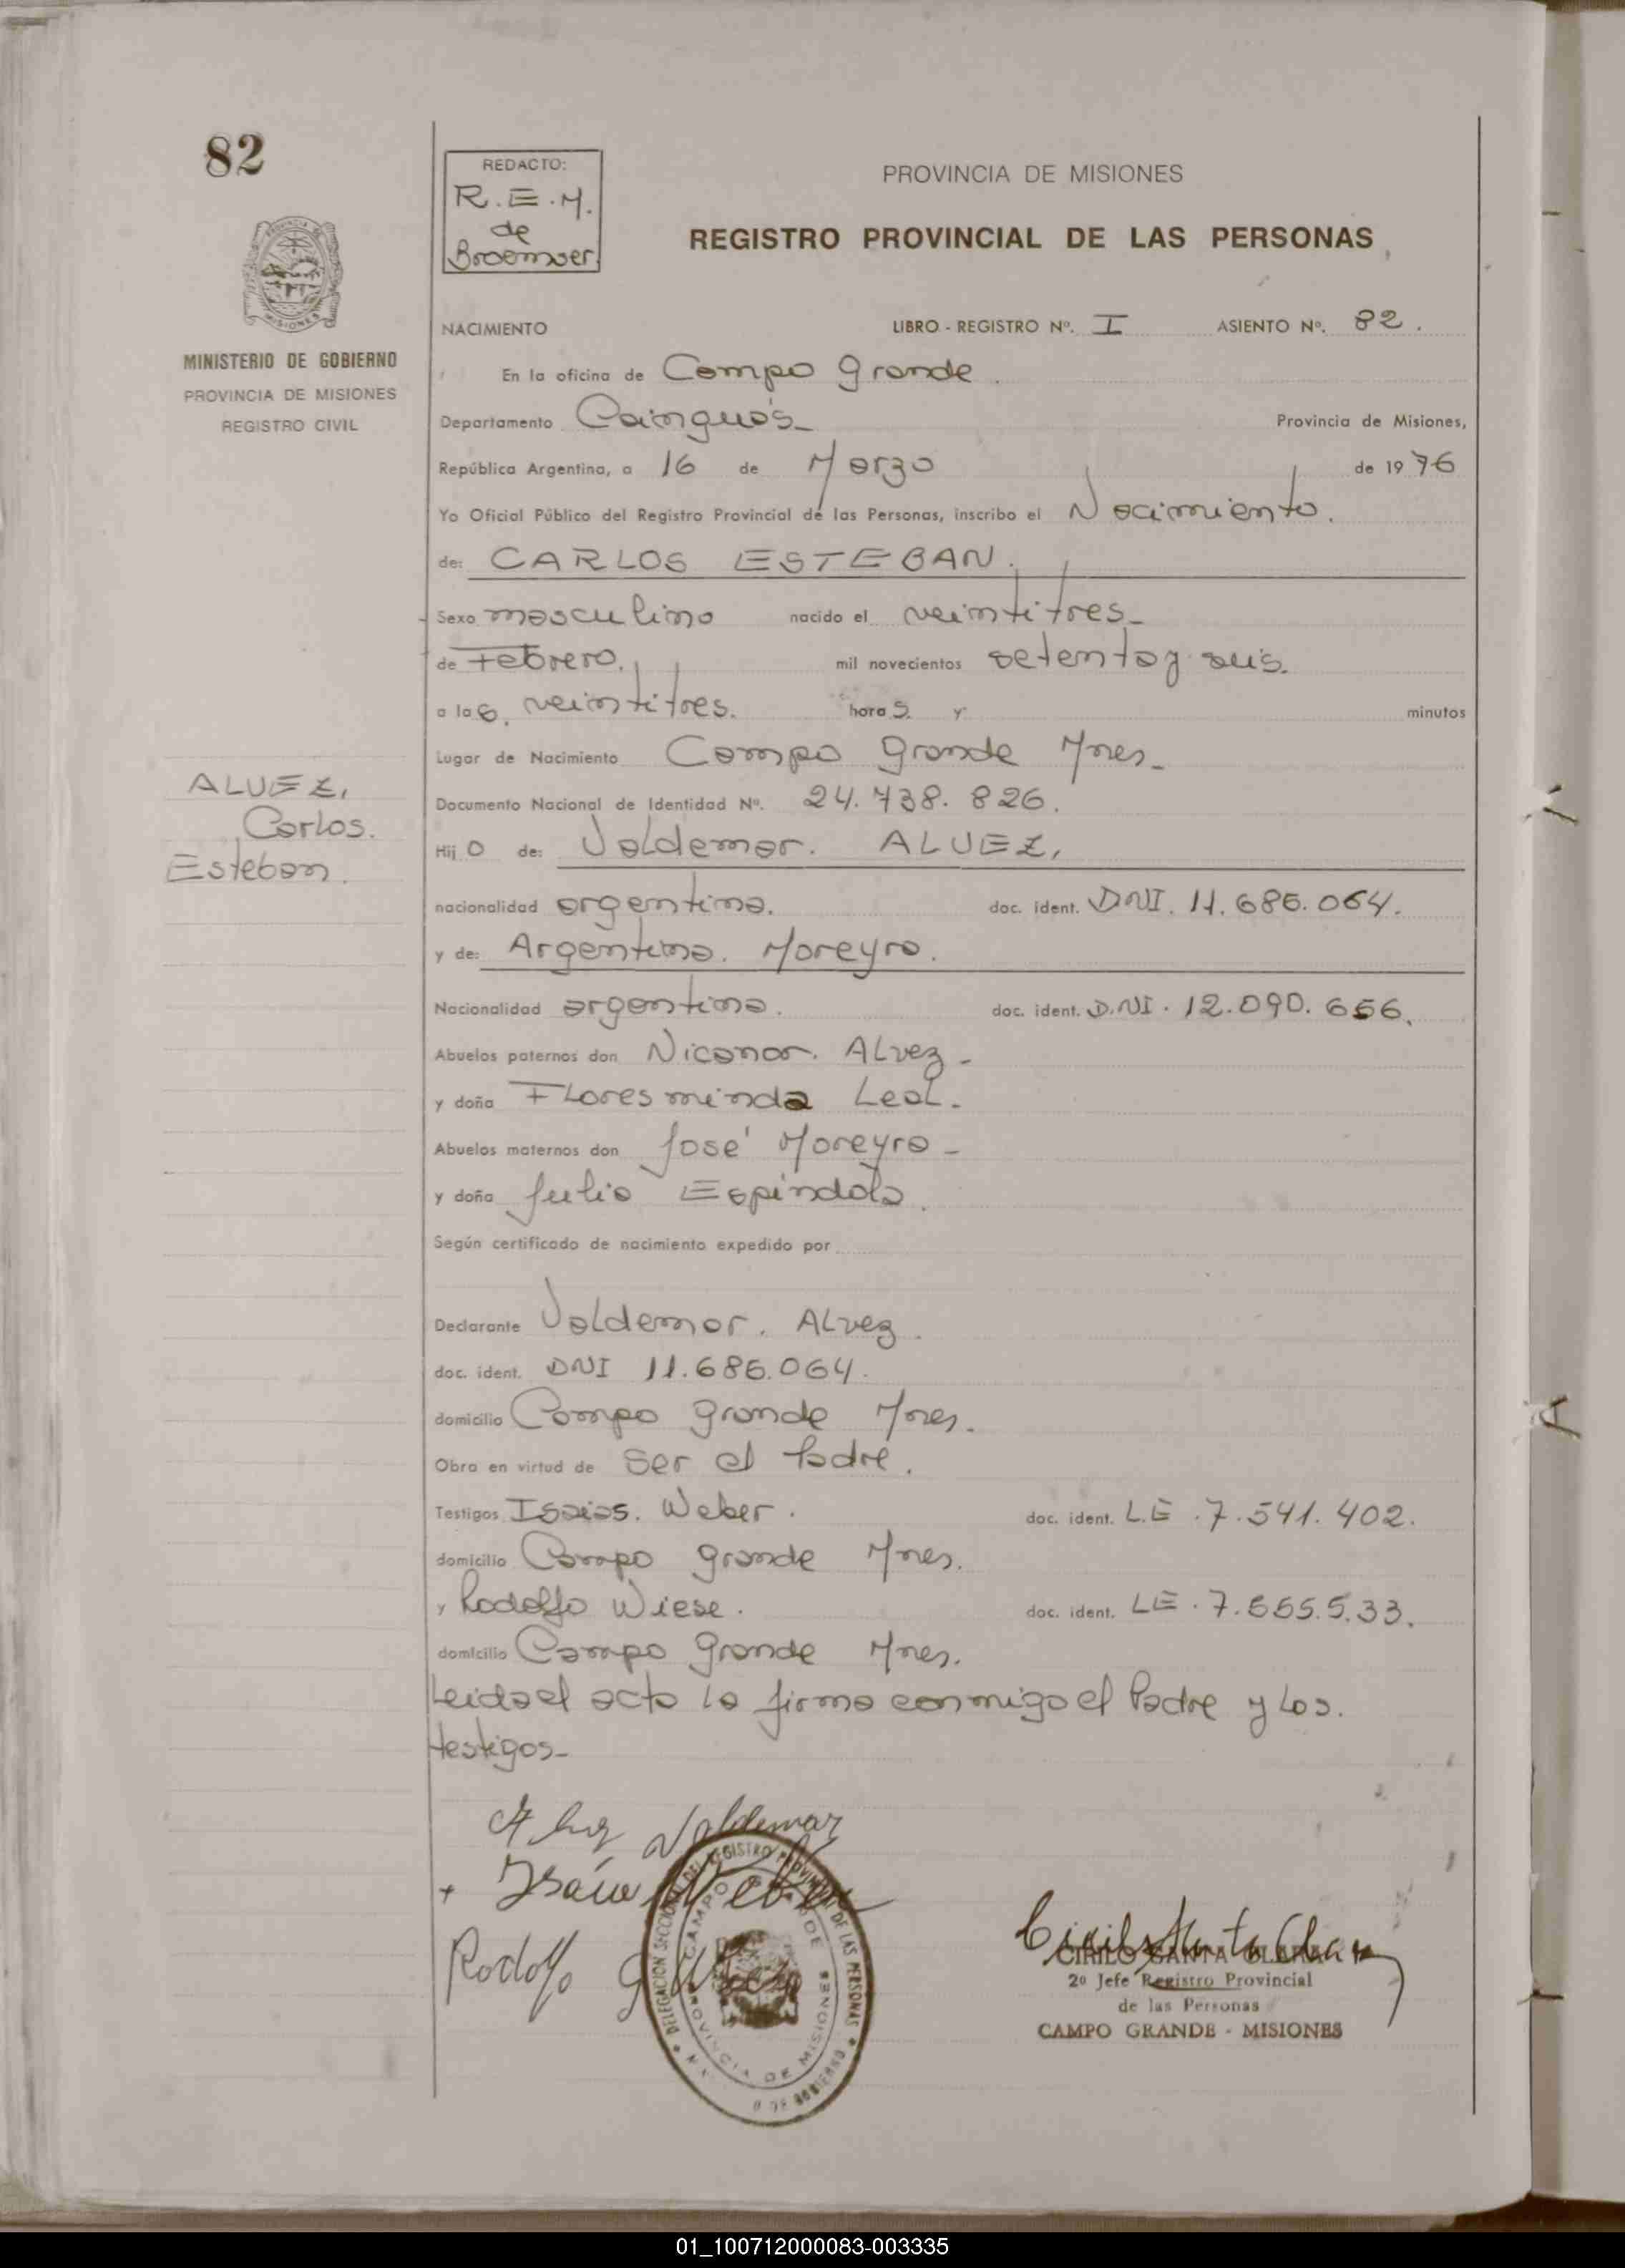 82
REDACTO:
R.E.M.
de
Broemser
PROVINCIA DE MISIONES
REGISTRO PROVINCIAL DE LAS PERSONAS
MISIONES
MINISTERIO DE GOBIERNO
PROVINCIA DE MISIONES
REGISTRO CIVIL
NACIMIENTO LIBRO - REGISTRO Nº. I ASIENTO Nº. 82.
En la oficina de Campo Grande.
Departamento Cainguás- Provincia de Misiones,
República Argentina, a 16 de Marzo de 1976
Yo Oficial Público del Registro Provincial de las Personas, inscribo el Nacimiento.
de: CARLOS ESTEBAN.
Sexo masculino nacido el veintitres-
de Febrero. mil novecientos setenta y seis.
a las. veintitres. horas. y minutos
Lugar de Nacimiento Campo Grande Mnes-
Documento Nacional de Identidad Nº. 24.738.826.
ALVEZ,
Carlos.
Esteban.
Hijo de: Valdemar. ALVEZ,
nacionalidad argentina. doc. ident. DNI. 11.686.064.
y de: Argentina. Moreyra.
Nacionalidad argentina. doc. ident. D.NI. 12.090.656.
Abuelos paternos don Nicanor. Alvez-
y doña Floresminda Leal.
Abuelos maternos don José Moreyra-
y doña Julia Espindola.
Según certificado de nacimiento expedido por
Declarante Valdemar. Alvez.
doc. ident. DNI 11.686.064.
domicilio Campo Grande Mnes.
Obra en virtud de ser el Padre.
Testigos Isaias. Weber. doc. ident. L.E.7.541.402.
domicilio Campo Grande Mnes.
y Rodolfo Wiese. doc. ident. LE.7.555.5.33.
domicilio Campo Grande Mnes.
Leida el acta la firma conmigo el Padre y los.
testigos-
Valdemar
Isaias Weber
Rodolfo
DELEGACION SECCIONAL DEL REGISTRO PROVINCIAL DE LAS PERSONAS
CAMPO GRANDE
PROVINCIA DE MISIONES
Cirilo Santa Clara
CIRILO SANTA CLARA
2º Jefe Registro Provincial
de las Personas
CAMPO GRANDE - MISIONES
01_100712000083-003335